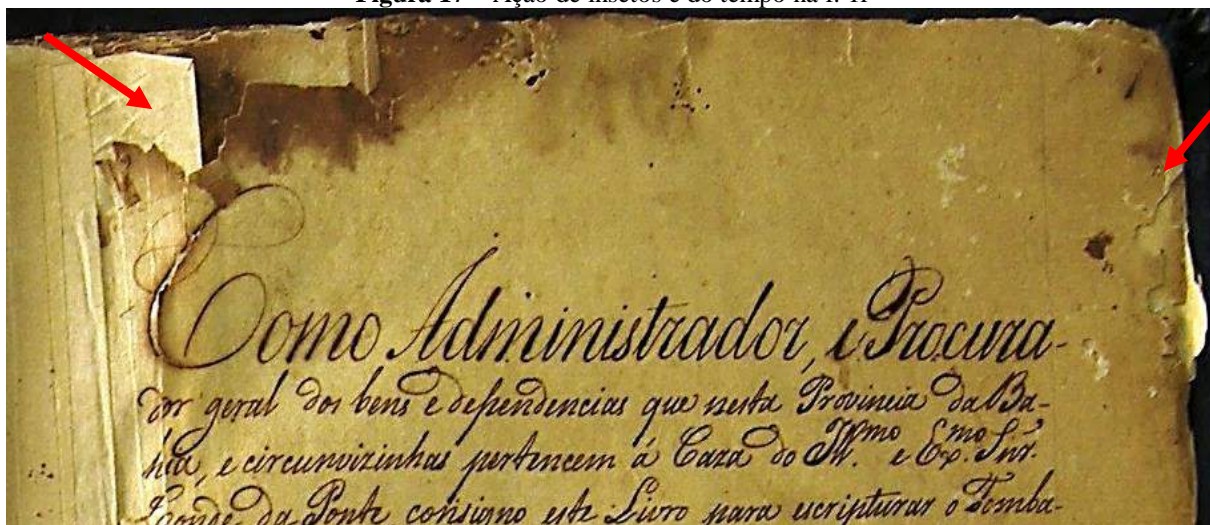 Figura 17 – Ação de insetos e do tempo na f. 1r
Como Administrador, e Procura-
dor geral dos bens e dependencias que nesta Provincia da Ba-
hia, e circunvizinhas pertencem á Caza do Ill.mo e Ex.mo Snr.
Conde da Ponte consigno este Livro para escripturar o Tomba-